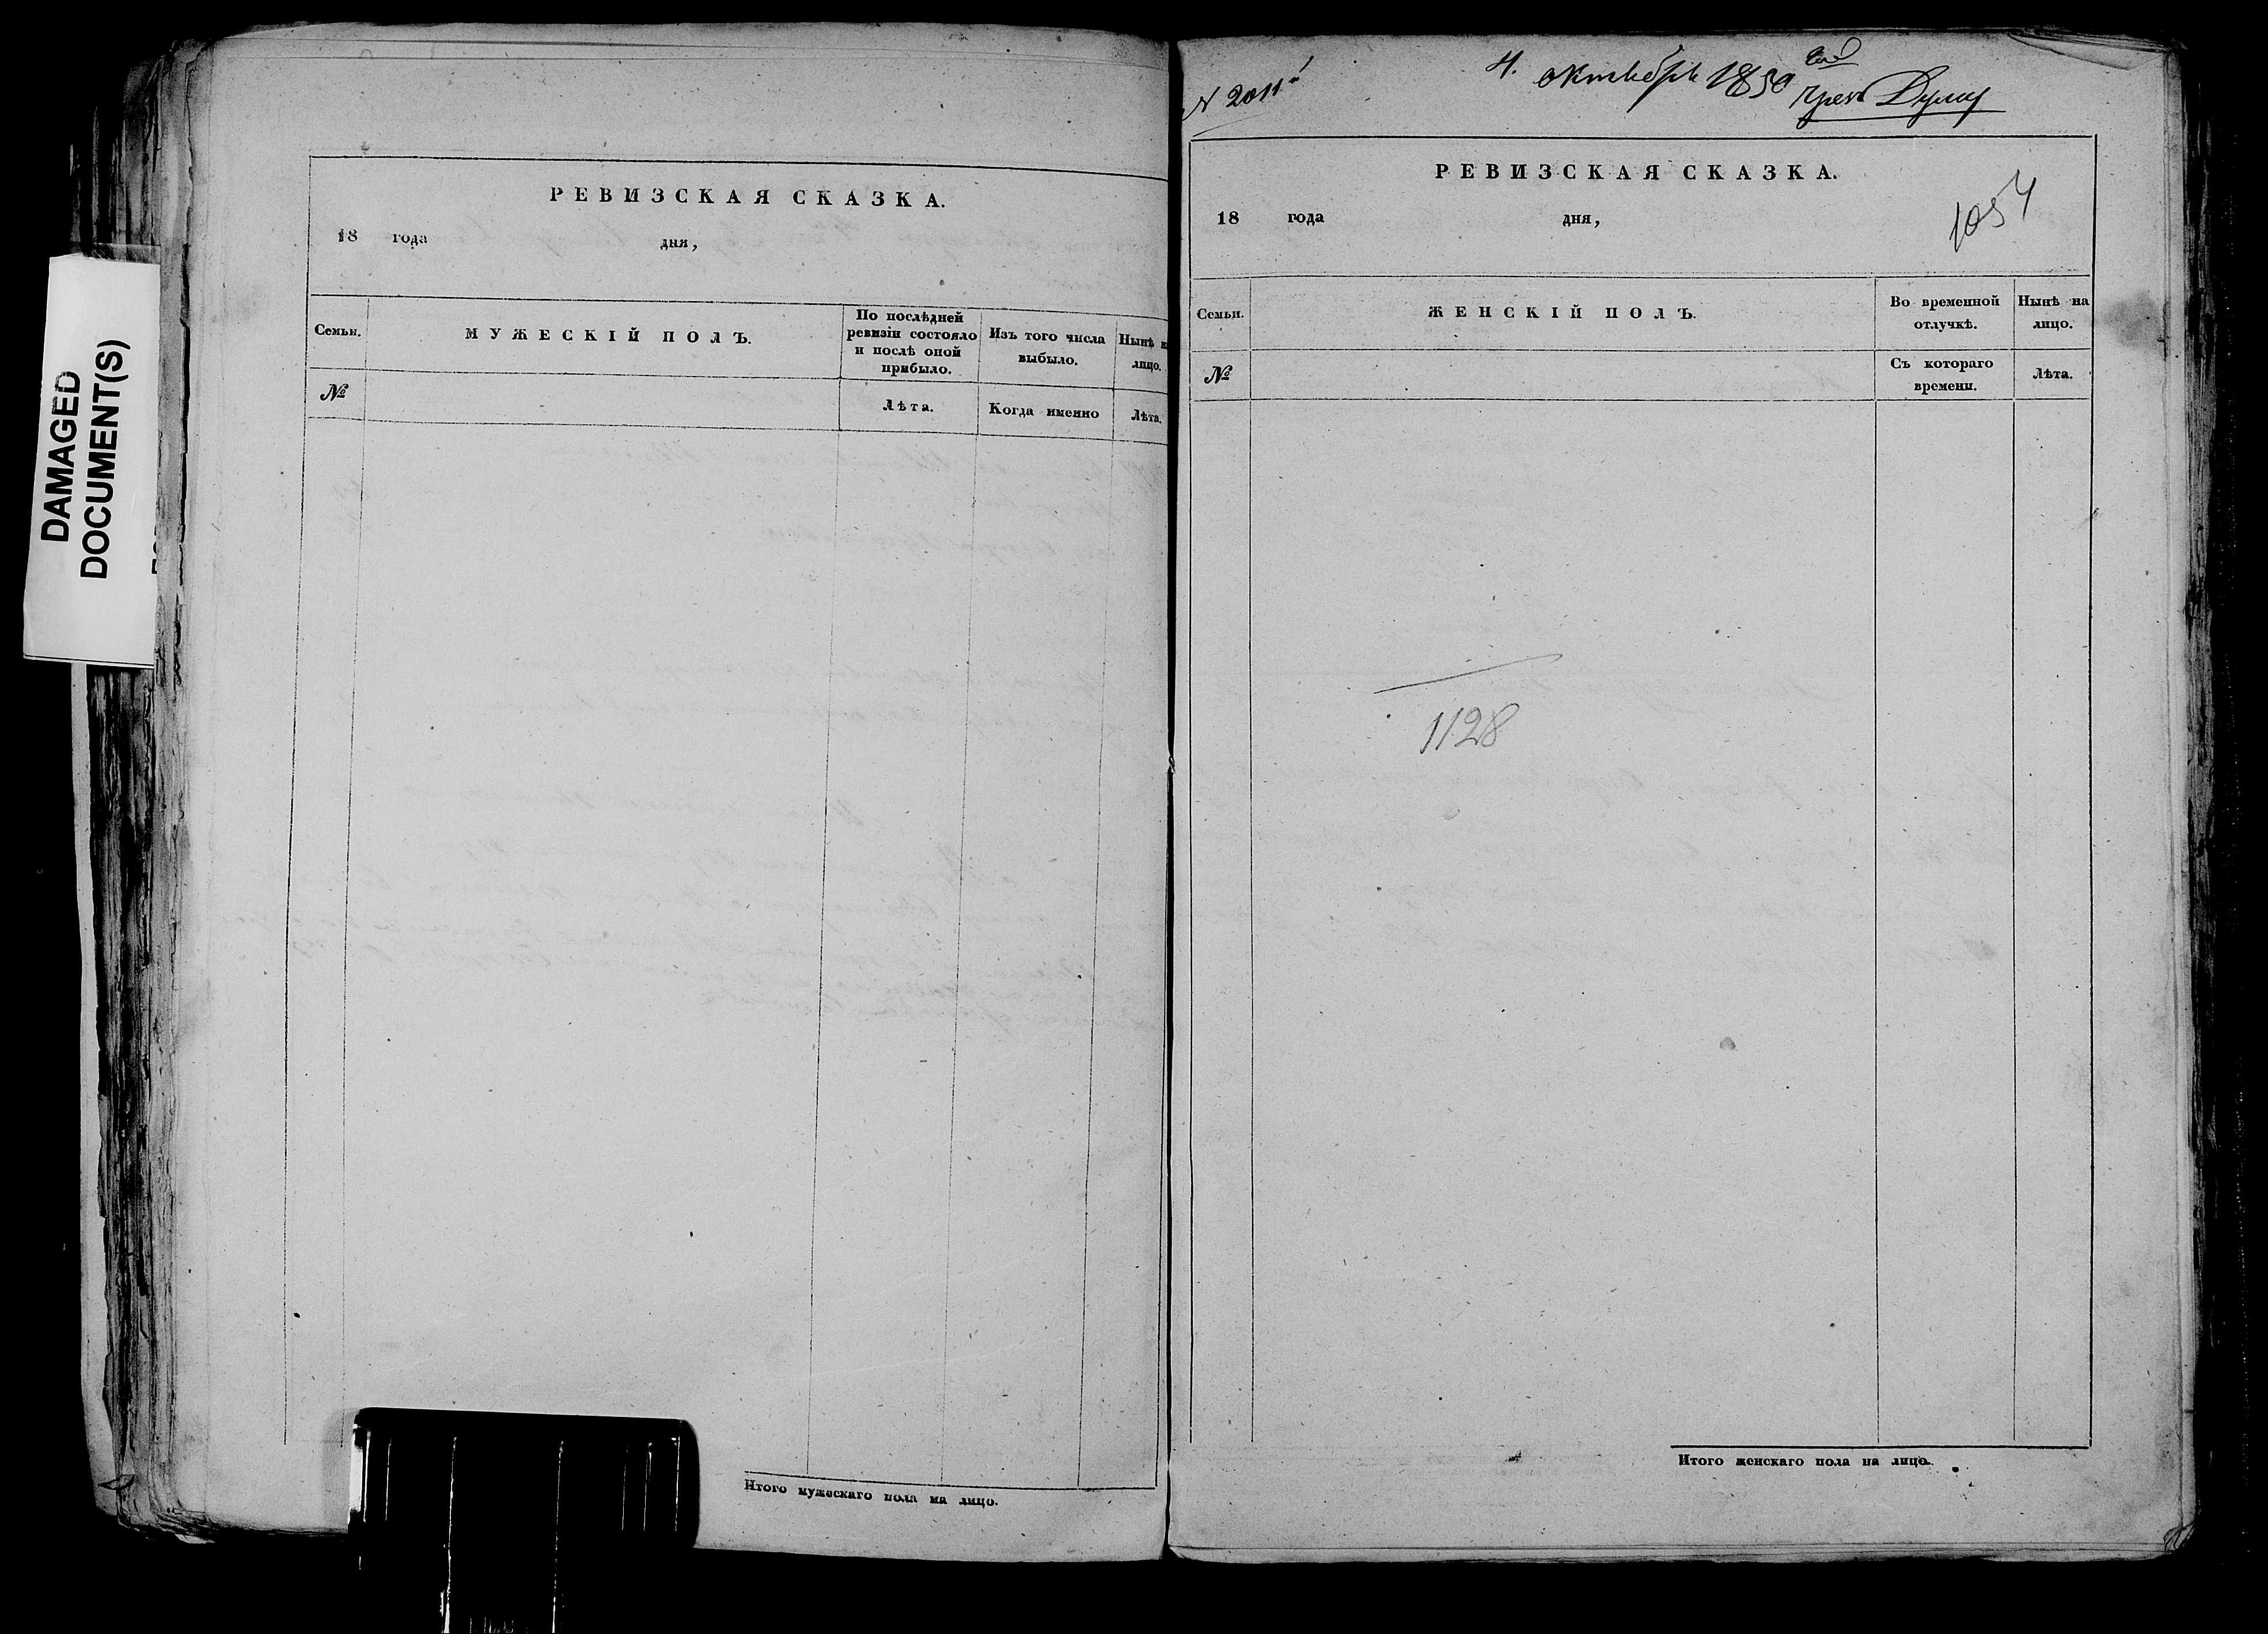 DAMAGED
DOCUMENT(S)
РЕВИЗСКАЯ СКАЗКА.
18 года дня,
Семьи.
МУЖЕСКІЙ ПОЛЪ.
По послѣдней
ревизіи состояло
и послѣ оной
прибыло.
Изъ того числа
выбыло.
Нынѣ н
лицо.
№
Лѣта.
Когда именно
Лѣта.
Итого мужескаго пола на лицо.
N 2011
4. октября 1850 год
чрез Думу
РЕВИЗСКАЯ СКАЗКА.
18 года дня,
1054
Семьи.
ЖЕНСКІЙ ПОЛЪ.
Во временной
отлучкѣ.
Нынѣ на
лицо.
№
Съ котораго
времени.
Лѣта.
1128
Итого женскаго пола на лицо.